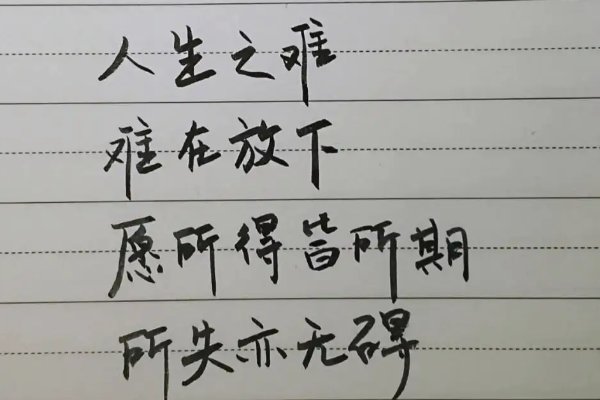 人生之难
难在放下
愿所得皆所期
所失亦无碍